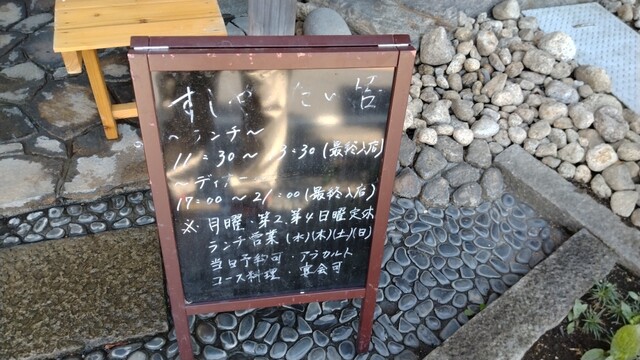 すし
〜ランチ〜
11:30〜13:30(最終入店)
〜ディナー〜
17:00〜21:00(最終入店)
※月曜・第2第4日曜定休
ランチ営業(水)(木)(土)(日)
当日予約可・アラカルト
コース料理・宴会可